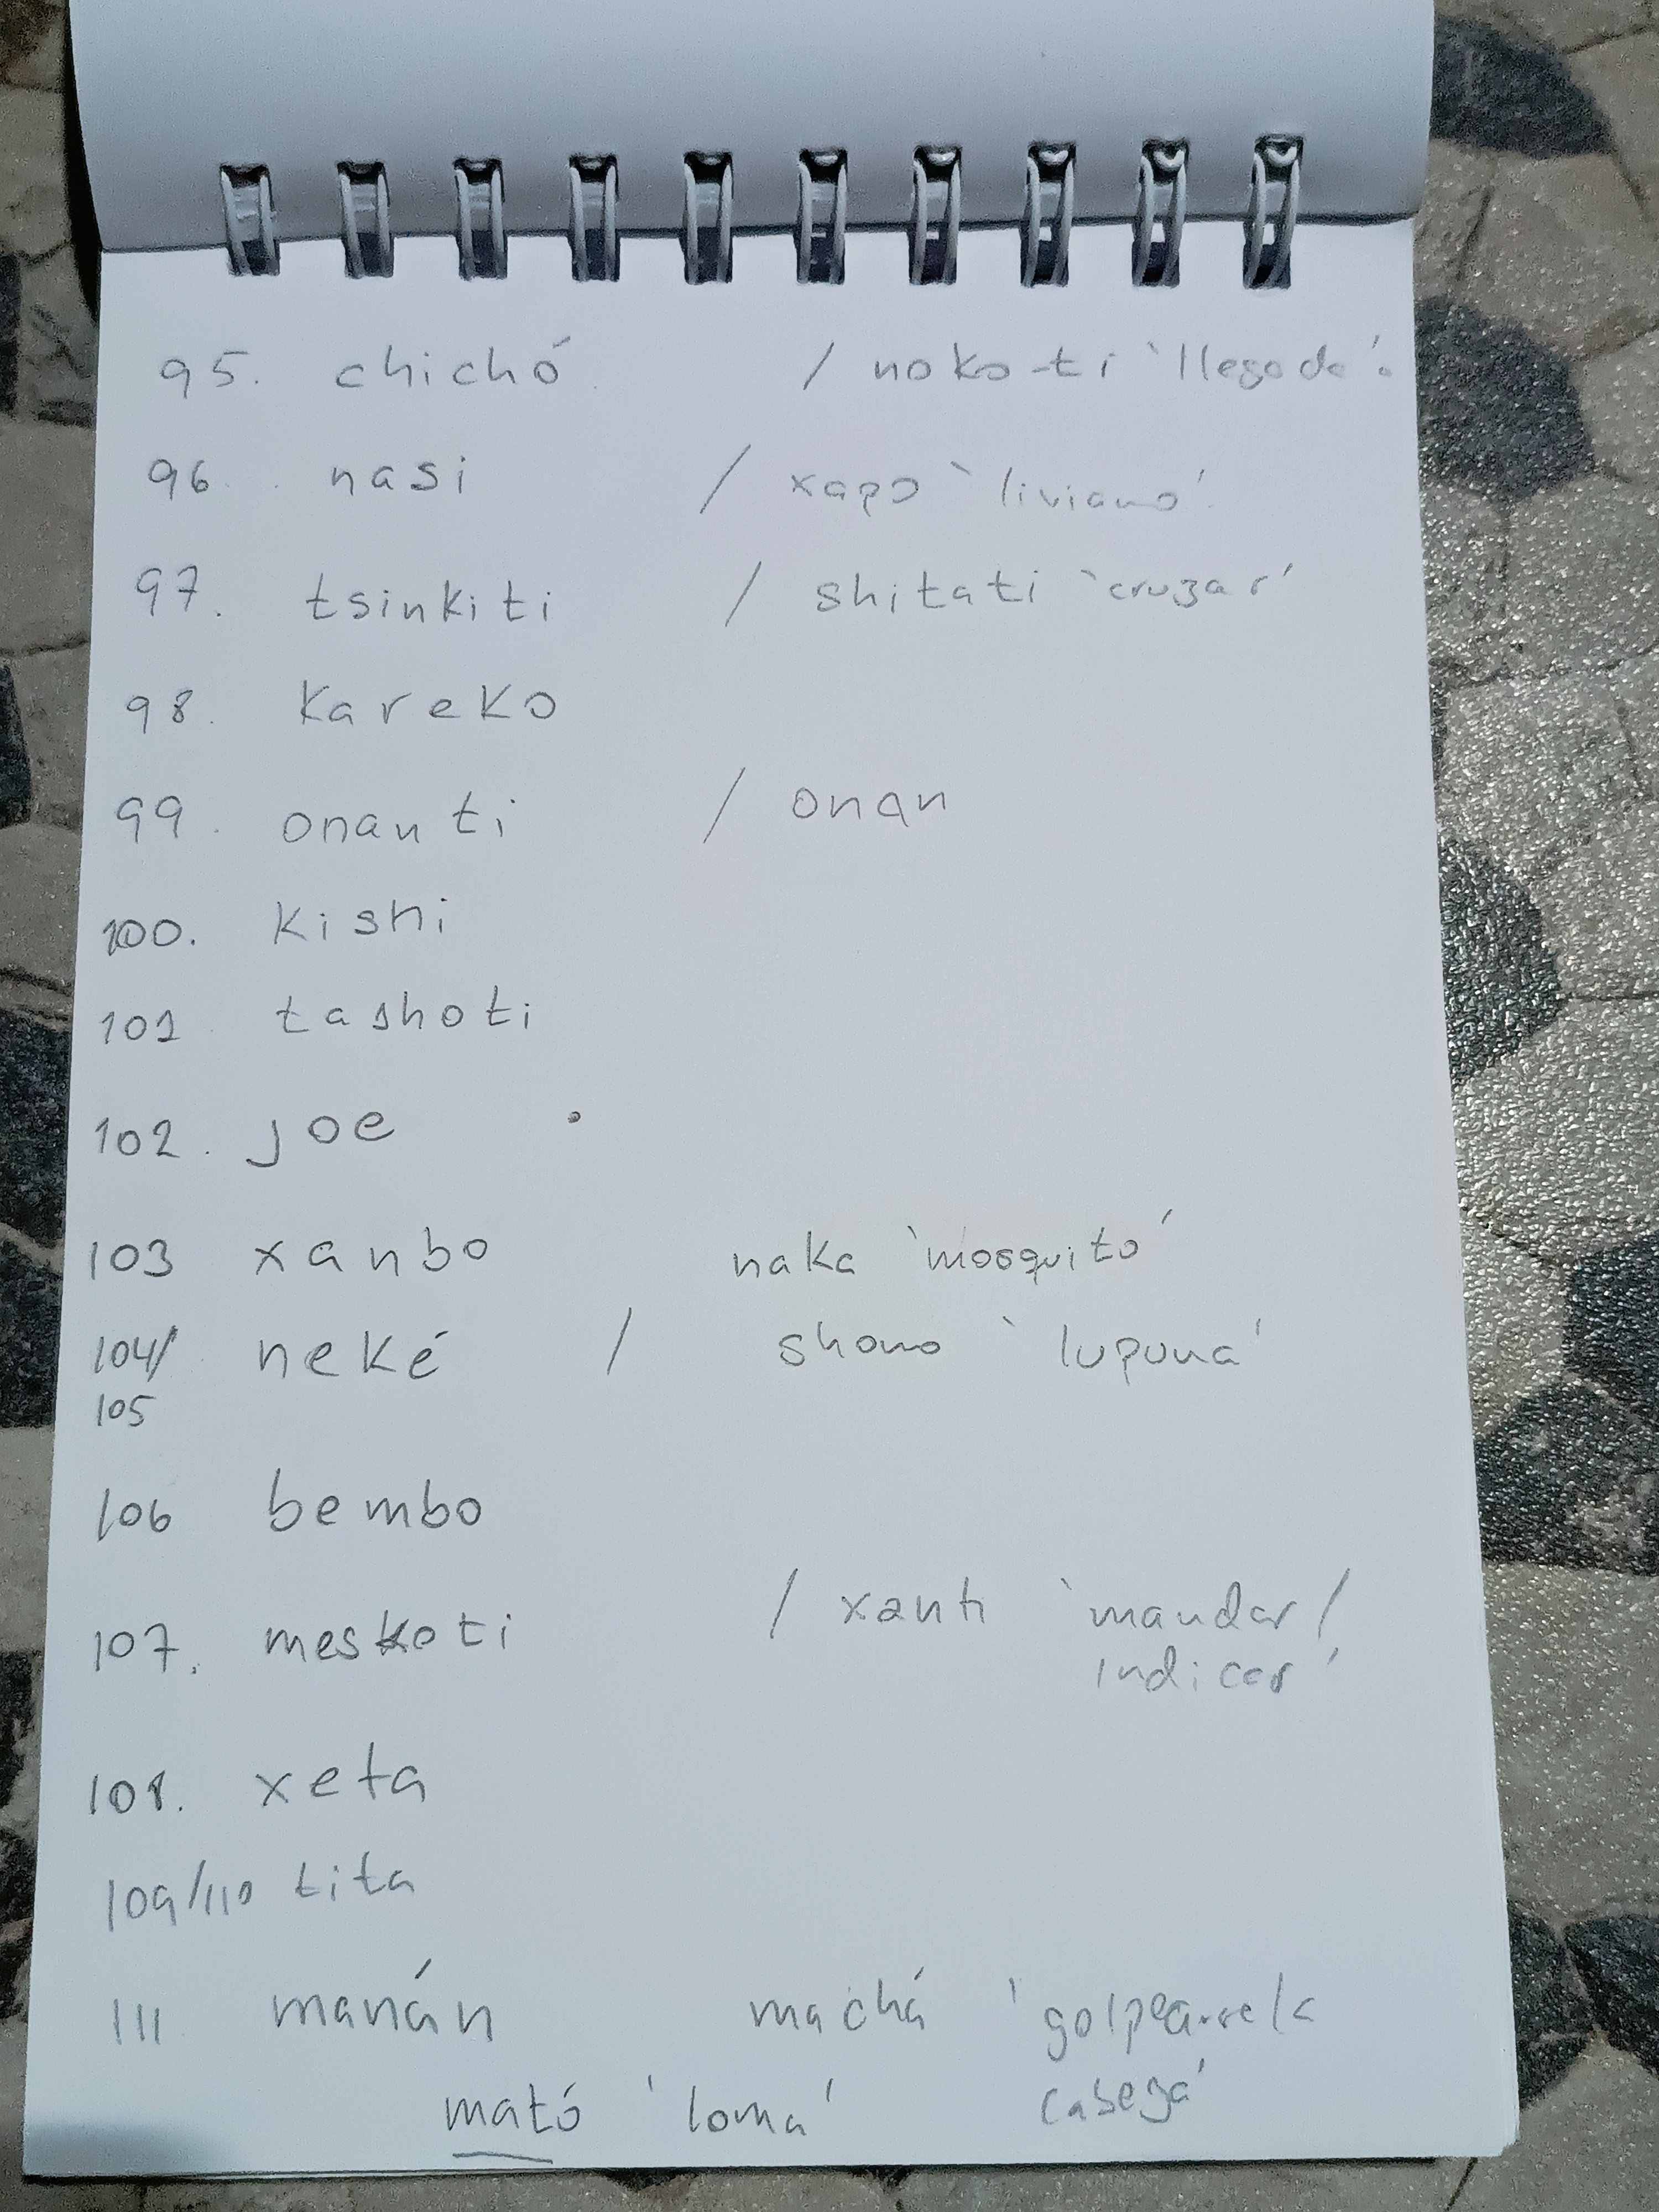 95. chichó / noko-ti `llegada´.
96. nasi / xapo `liviano´.
97. tsinkiti / shitati `cruzar´
98. kareko
99. onanti / onan
100. kishi
101 tashoti
102. joe
103 xanbo naka `mosquito´
104/ neké / shono `lupuna´
105
106 bembo
107. meskoti / xanti `mandar/
indicar´
108. xeta
109/110 tita
111 manán machá `golpearse la
mató `loma´ cabeza´